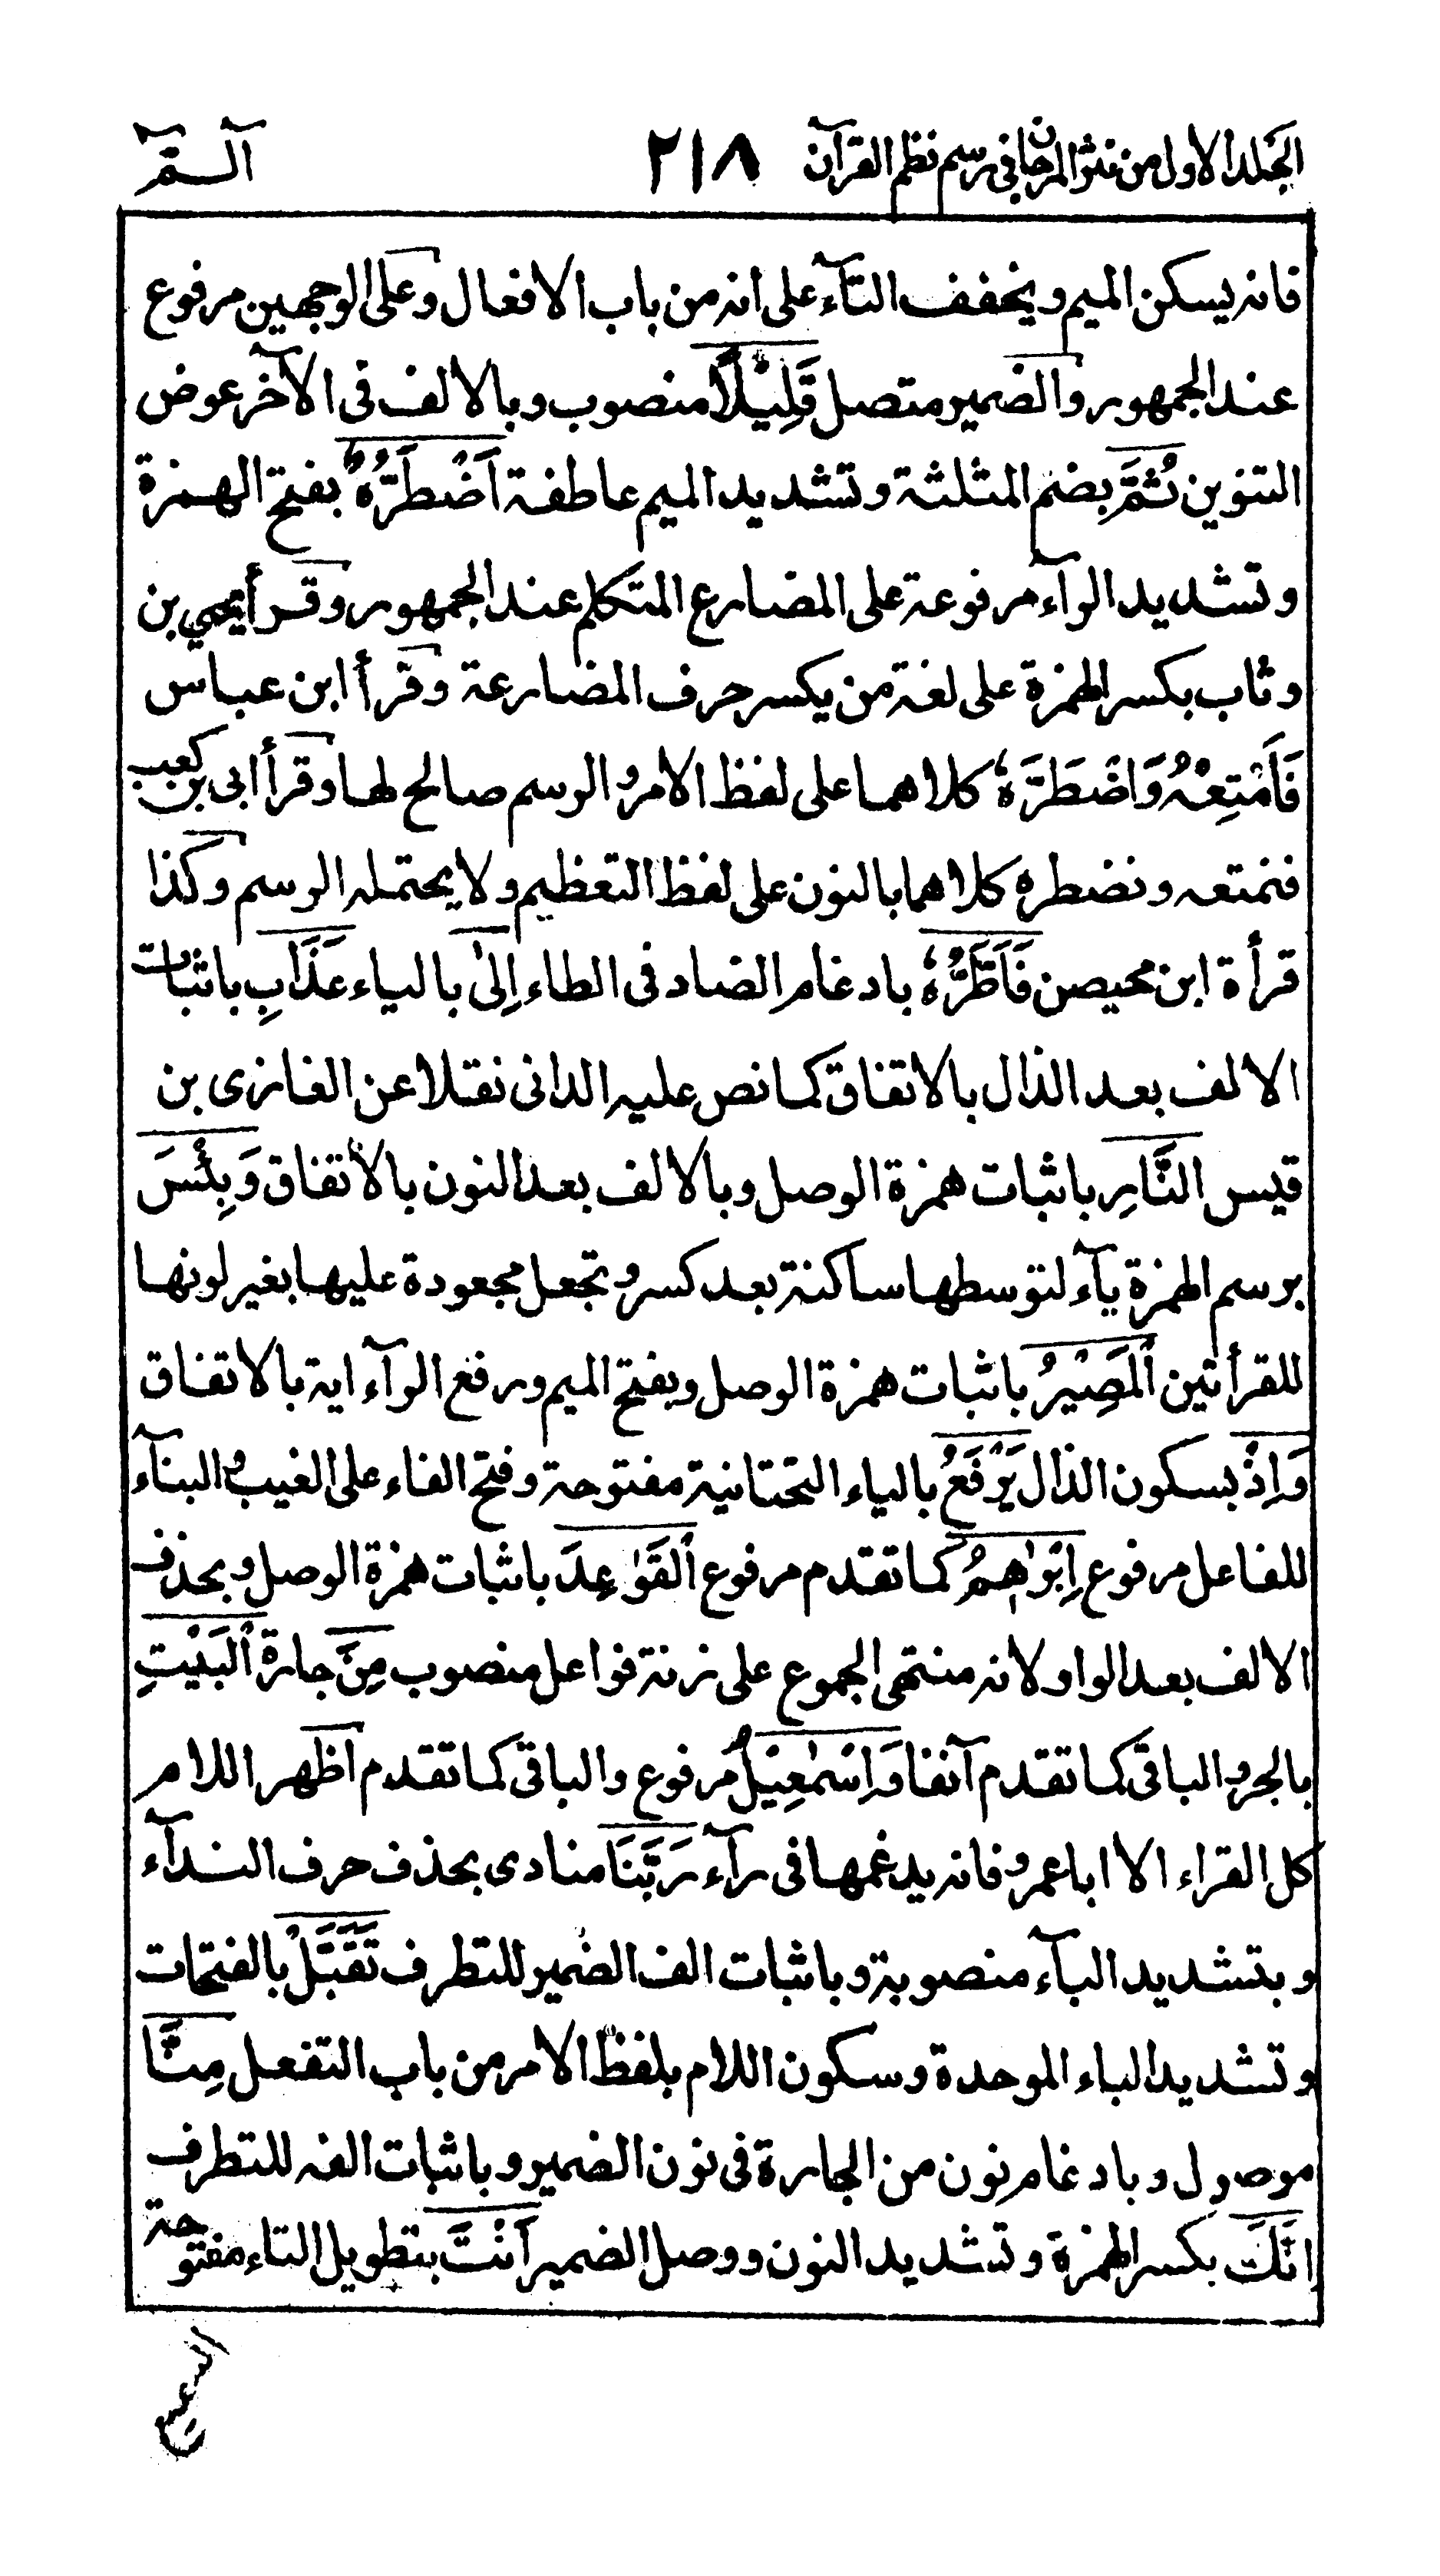 الجلد الاول من نثر المرجان في رسم نظم القرآن ٢١٨ آلــمّٓ
فانه يسكن الميم ويخفف التآء على انه من باب الافعال وعلى الوجهين مرفوع
عند الجمهور والضمير متصل قَلِيْلًا منصوب وبالالف فى الآخر عوض
التنوين ثُمَّ بضم المثلثة وتشديد الميم عاطفة اَضْطَرُّهٗ بفتح الهمزة
وتشديد الرآء مرفوعة على المضارع المتكلم عند الجمهور وقرأ يحيي بن
وثاب بكسر الهمزة على لغة من يكسر حرف المضارعة وقرأ ابن عباس
فَاَمْتِعْهُ وَاضْطَرَّهٗ كلاهما على لفظ الامر والرسم صالح لها وقرأ ابى بن كعب
فنمتعه ونضطره كلاهما بالنون على لفظ التعظيم ولا يحتمله الرسم وكذا
قرأة ابن محيصن فَاَطَّرُّهٗ بادغام الضاد فى الطاء اِلىٰ بالياء عَذَابِ باثبات
الالف بعد الذال بالاتفاق كما نص عليه الدانى نقلا عن الغازى بن
قيس النَّارِ باثبات همزة الوصل وبالالف بعد النون بالاتفاق وَبِئْسَ
برسم الهمزة يآء لتوسطها ساكنة بعد كسر وتجعل مجعودة عليها بغير لونها
للقرأتين اَلْمَصِيْرُ باثبات همزة الوصل وبفتح الميم ورفع الرآء اية بالاتفاق
وَاِذْ بسكون الذال يَرْفَعُ بالياء التحتانية مفتوحة وفتح الفاء على الغيب والبنآء
للفاعل مرفوع اِبْرٰهٖمُ كما تقدم مرفوع اَلْقَوٰعِدَ باثبات همزة الوصل وبحذف
الالف بعد الواو لانه منتهى الجموع على زنة فواعل منصوب مِنَ جارة اَلْبَيْتِ
بالجر والباقى كما تقدم آنفا وَاِسْمٰعِيْلُ مرفوع والباقى كما تقدم اظهر اللام
كل القراء الا ابا عمرو فانه يدغمها فى رآء رَبَّنَا منادى بحذف حرف الندآء
وبتشديد البآء منصوبة وباثبات الف الضمير للتطرف تَقَبَّلْ بالفتحات
وتشديد الباء الموحدة وسكون اللام بلفظ الامر من باب التفعل مِنَّا
موصول وبادغام نون من الجارة فى نون الضمير وباثبات الفه للتطرف
اِنَّكَ بكسر الهمزة وتشديد النون ووصل الضمير اَنْتَ بتطويل التاء مفتوحة
السميع